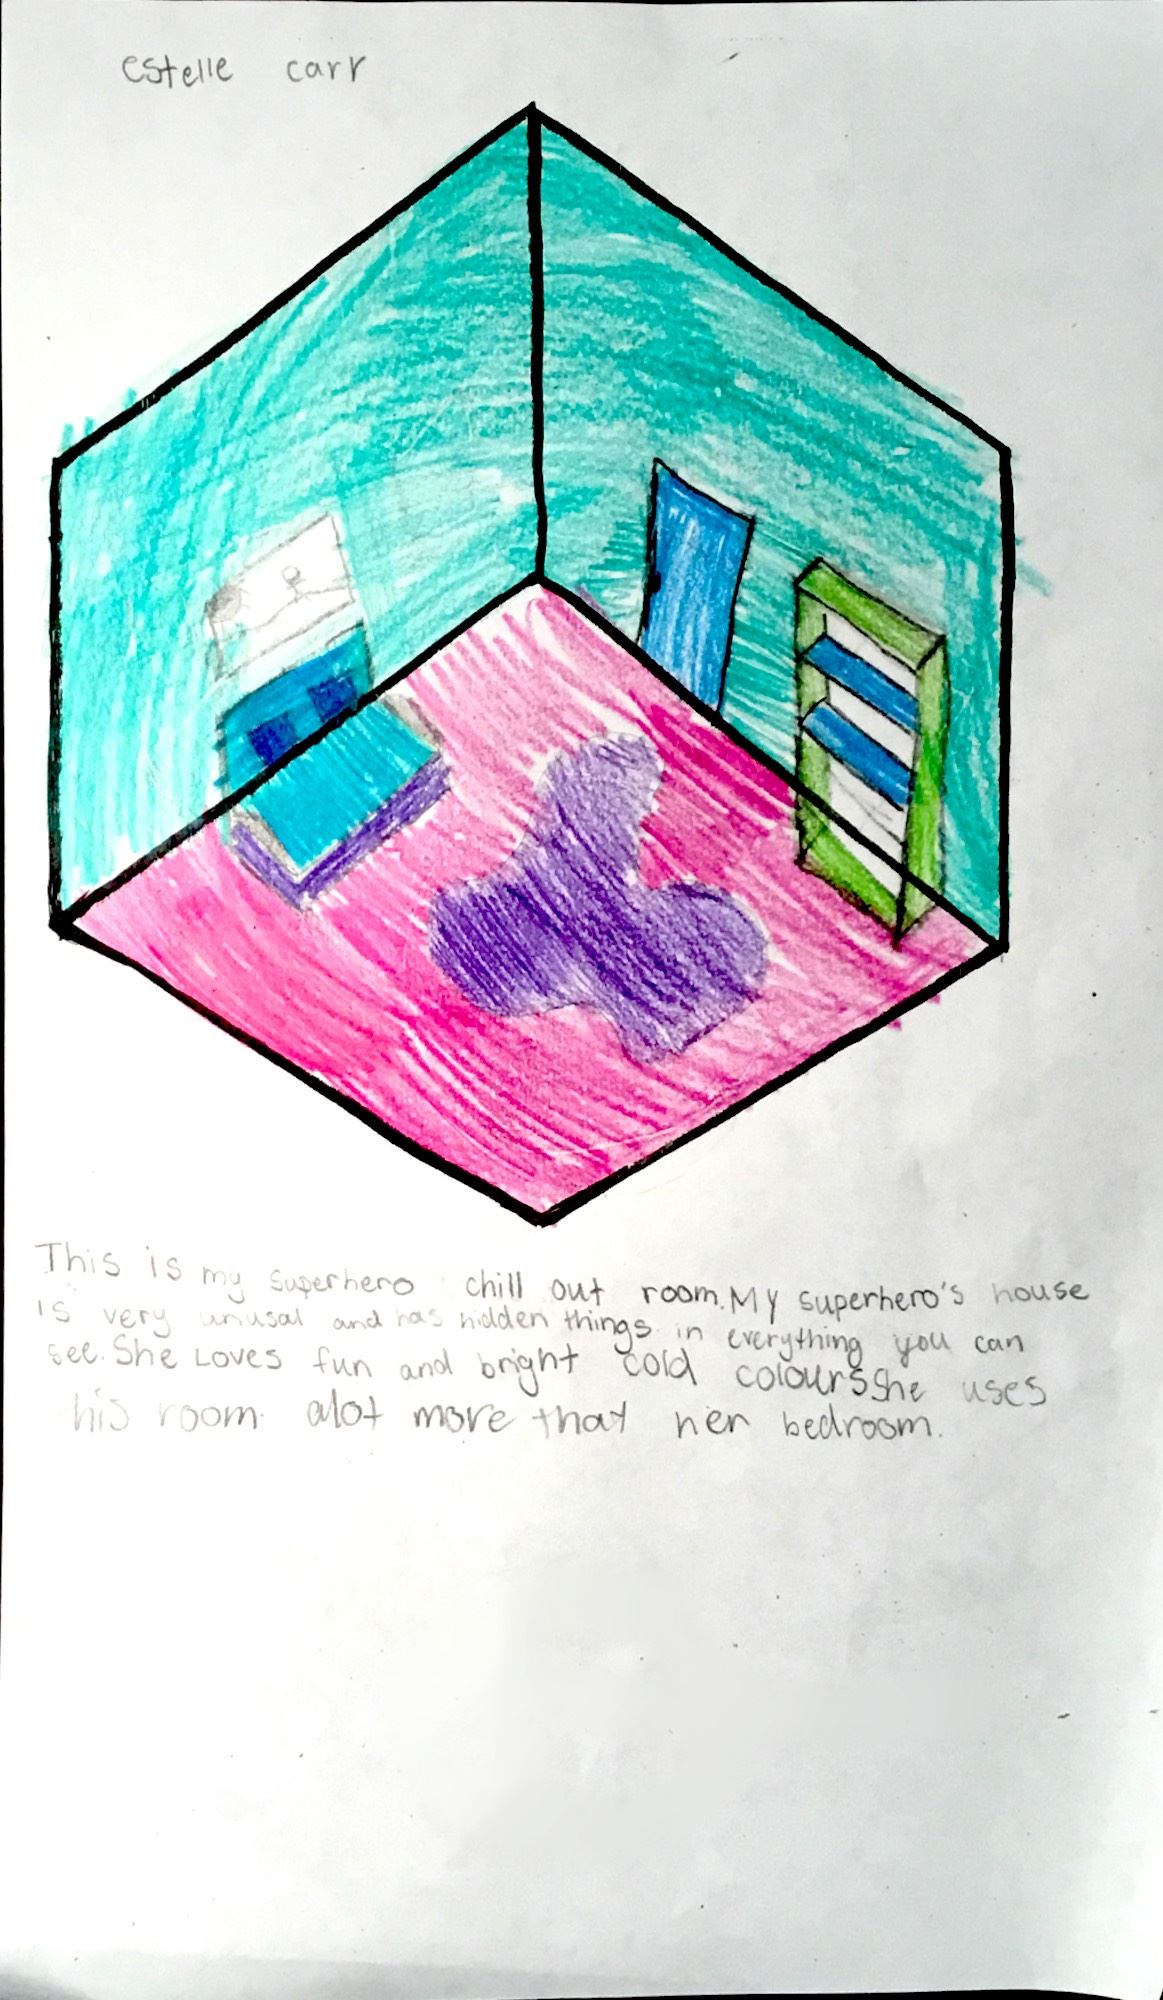 estelle carr
This is my superhero chill out room. My superhero's house
is very unusal and has hidden things in everything you can
see. She Loves fun and bright cold colours She uses
his room alot more that her bedroom.